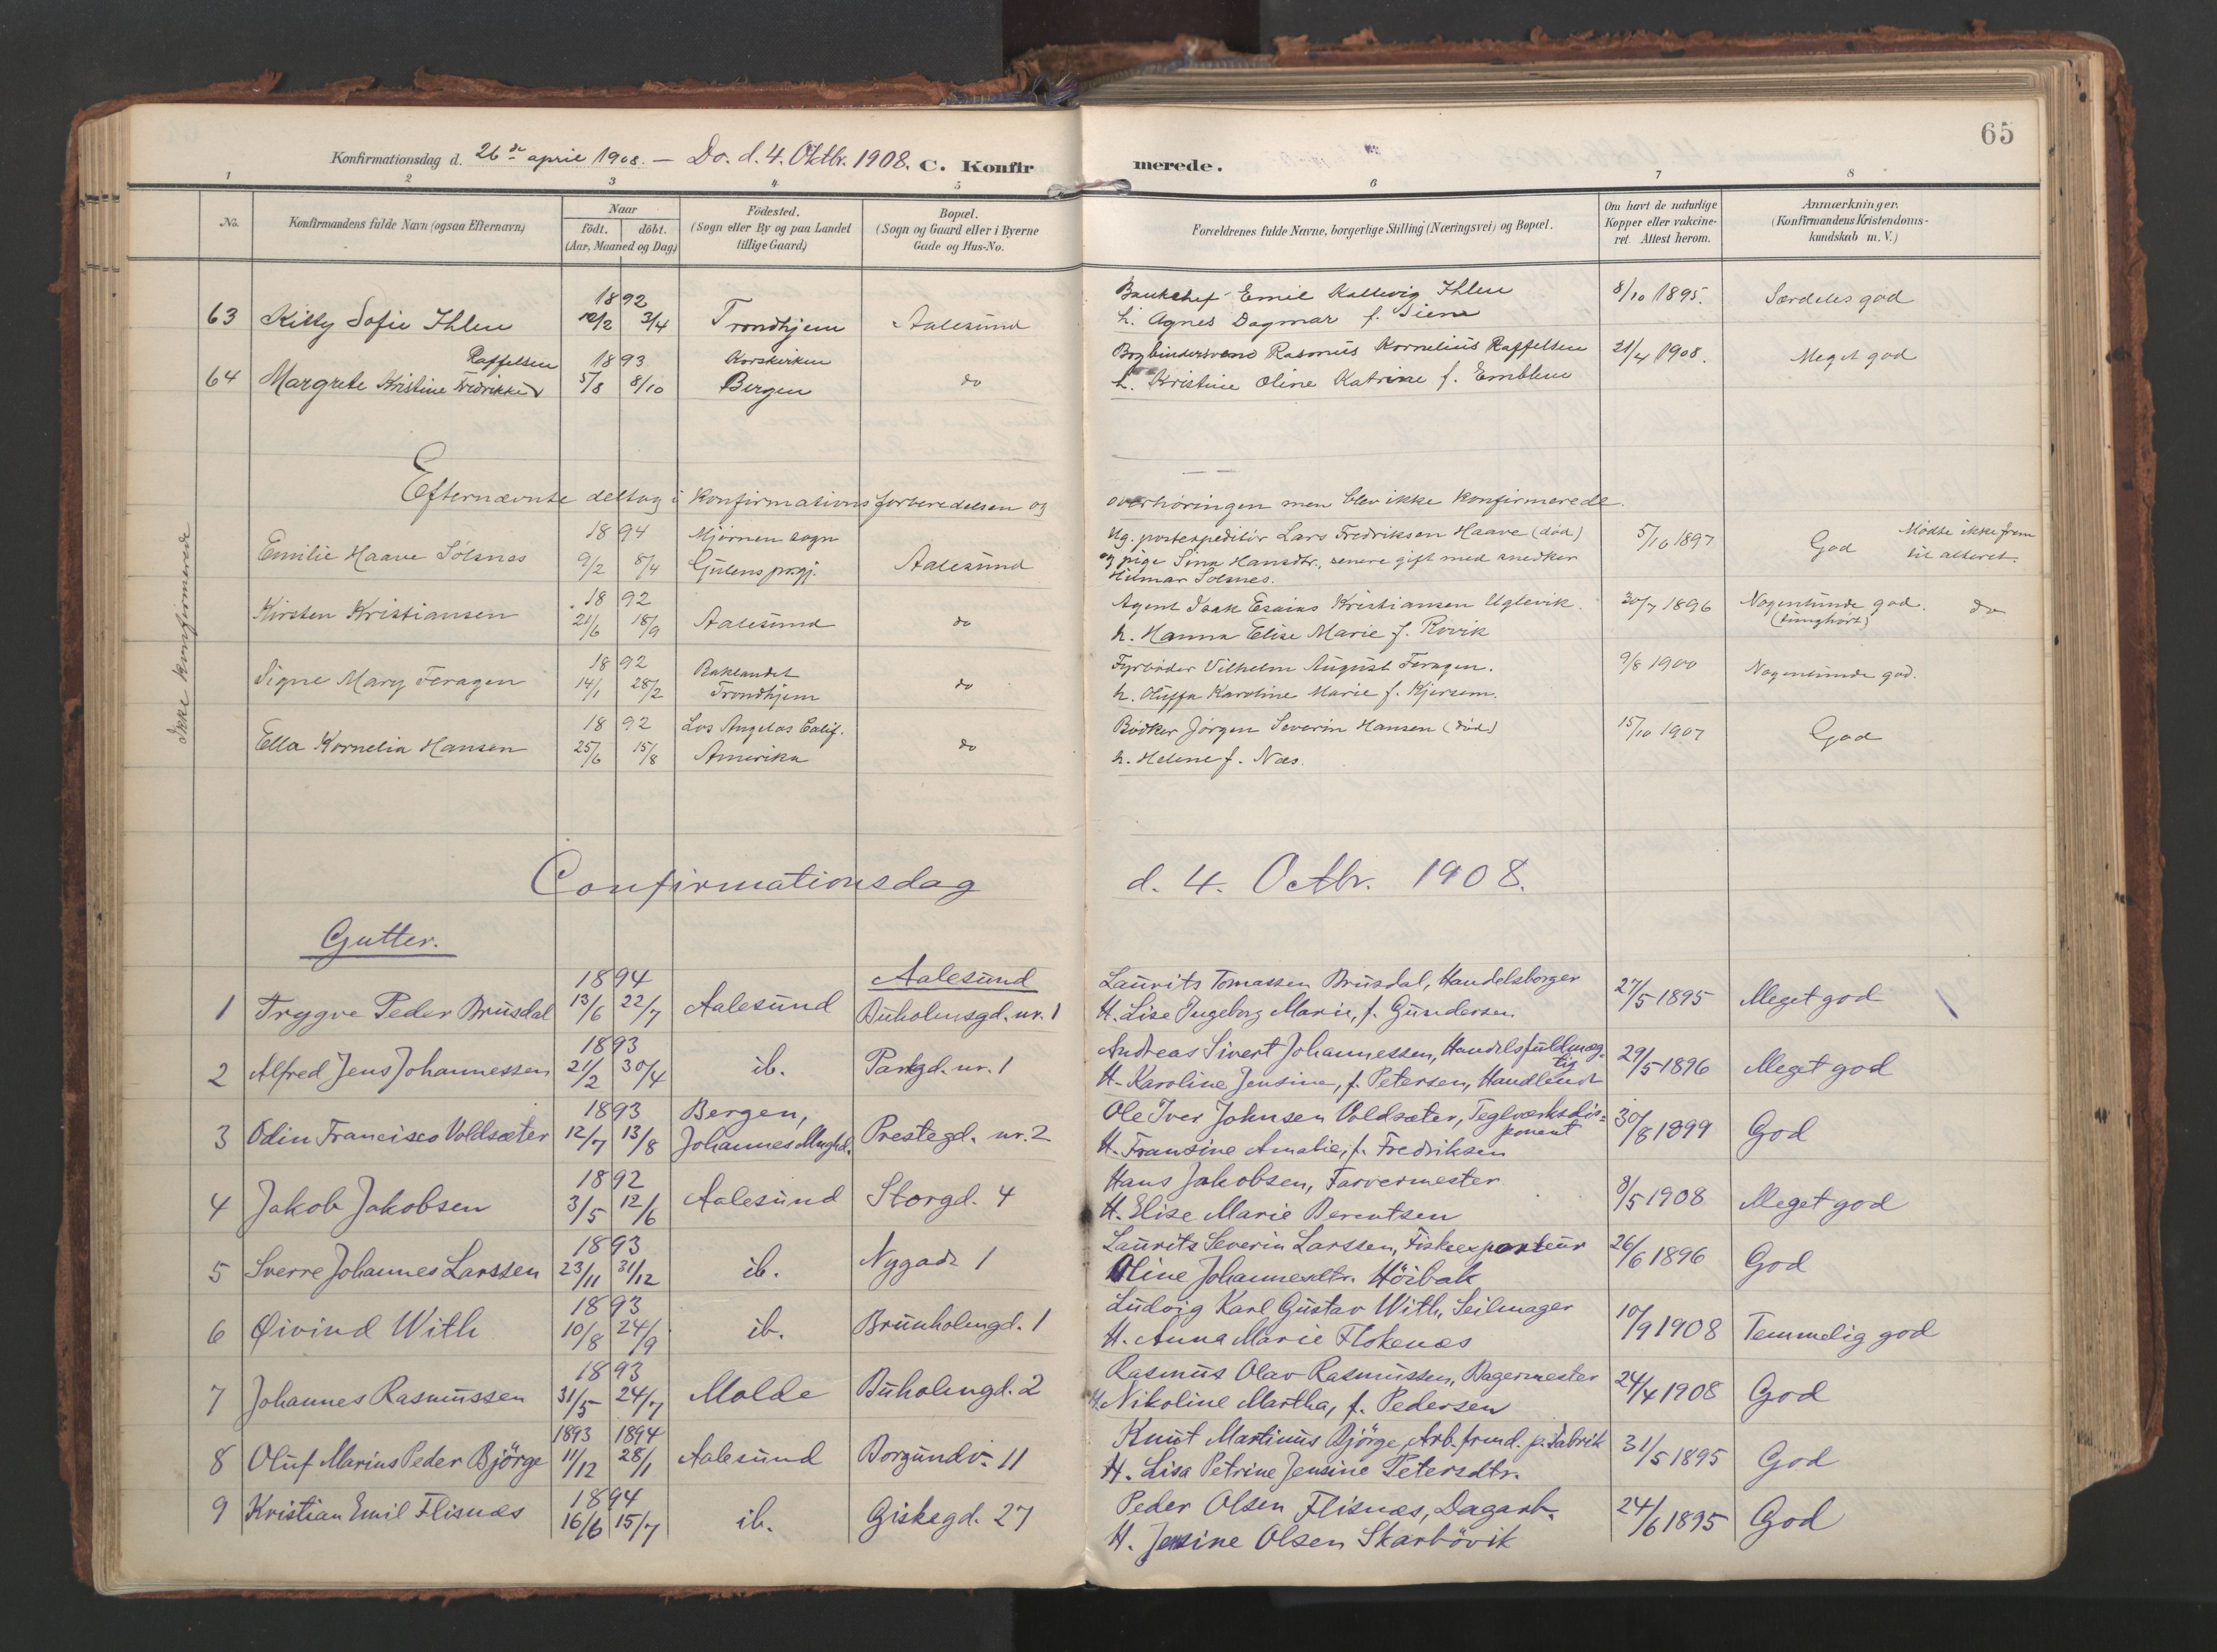 65
Konfirmationsdag d. 26de april 1908. — Do. d. 4. Oktbr. 1908. C. Konfirmerede.
1 2 3 4 5 6 7 8
No. Konfirmandens fulde Navn (ogsaa Efternavn) Naar födt. döbt. (Aar, Maaned og Dag) Födested. (Sogn eller By og paa Landet tillige Gaard) Bopæl. (Sogn og Gaard eller i Byerne Gade og Hus-No. Forældrenes fulde Navne, borgerlige Stilling (Næringsvei) og Bopæl. Om havt de naturlige Kopper eller vakcineret. Attest herom. Anmærkninger. (Konfirmandens Kristendomskundskab m. V.)
1892 Bankchef Emil Kallevig Ihlen 8/10 1895.
63 Kitty Sofie Ihlen 12/2 3/4 Trondhjem Aalesund h. Agnes Dagmar f. Siem Særdeles god
Raffelsen 1893 Korskirken Bogbindersvend Rasmus Kornelius Raffelsen 21/4 1908.
64 Margrete Kristine Fredrikke 5/8 8/10 Bergen do h. Kristine Oline Katrine f. Emblem Meget god
Efternævnte deltog i Konfirmationsforberedelsen og overhöringen men blev ikke konfirmerede.
Ikke konfirmerede
1894 Mjörmen sogn Ug. postexpeditör Lars Fredriksen Haave (död) 5/10 1897 Mödte ikke frem
Emilie Haave Solsnes 9/2 8/4 Gulens prgj. Aalesund og pige Sina Hansdtr., senere gift med snedker God til alteret.
Hilmar Solsnes.
1892 Agent Isak Esaias Kristiansen Uglevik 30/7 1896 Nogenlunde god.
Kirsten Kristiansen 21/6 18/9 Aalesund do h. Hanna Elise Marie f. Rövik (tunghört) do
1892 Baklandet Fyrböder Vilhelm August Feragen. 9/8 1900
Signe Mary Feragen 14/1 28/2 Trondhjem do h. Oluffa Karoline Marie f. Kjersem. Nogenlunde god.
1892 Los Angelos Calif. Bödker Jörgen Severin Hansen (död) 15/10 1907
Ella Kornelia Hansen 25/6 15/8 Amerika do h. Helene f. Næs. God
Confirmationsdag d. 4. Octbr. 1908.
Gutter.
1894 Aalesund Laurits Tomassen Brusdal, Handelsborger
1 Trygve Peder Brusdal 13/6 22/7 Aalesund Buholmsgd. nr. 1 H. Lise Ingeborg Marie, f. Gundersen 27/5 1895 Meget god
1893 Andreas Sivert Johannessen, Handelsfuldmægtig
2 Alfred Jens Johannessen 21/2 30/4 ib. Parkgd. nr. 1 H. Karoline Jensine, f. Petersen, Handlende 29/5 1896 Meget god
1893 Bergen, Ole Iver Johnsen Voldsæter, Teglverksdisponent
3 Odin Francisco Voldsæter 12/7 13/8 Johannes Mnghd. Prestegd. nr. 2 H. Fransine Amalie, f. Fredriksen 30/8 1899 God
1892 Hans Jakobsen, Farvermester
4 Jakob Jakobsen 3/5 12/6 Aalesund Storgd. 4 H. Elise Marie Berentsen 8/5 1908 Meget god
1893 Laurits Severin Larssen, Fiskeexporteur
5 Sverre Johannes Larssen 23/11 31/12 ib. Nygade 1 Oline Johannesdtr. Höibak 26/6 1896 God
1893 Ludvig Karl Gustav With, Seilmager
6 Øivind With 10/8 24/9 ib. Brunholmgd. 1 H. Anna Marie Flokenæs 10/9 1908 Temmelig god
1893 Rasmus Olav Rasmussen, Bagermester
7 Johannes Rasmussen 31/5 24/7 Molde Buholmgd. 2 H. Nikoline Martha, f. Pedersen 24/4 1908 God
1893 1894 Knut Martinus Björge, Arb. frmd. p. Fabrik
8 Oluf Marius Peder Björge 11/12 28/1 Aalesund Borgundv. 11 H. Lisa Petrine Jensine Petersdtr. 31/5 1895 God
1894 Peder Olsen Flisnæs, Dagarb.
9 Kristian Emil Flisnæs 16/6 15/7 ib. Giskegd. 27 H. Jensine Olsen Skarbövik 24/6 1895 God